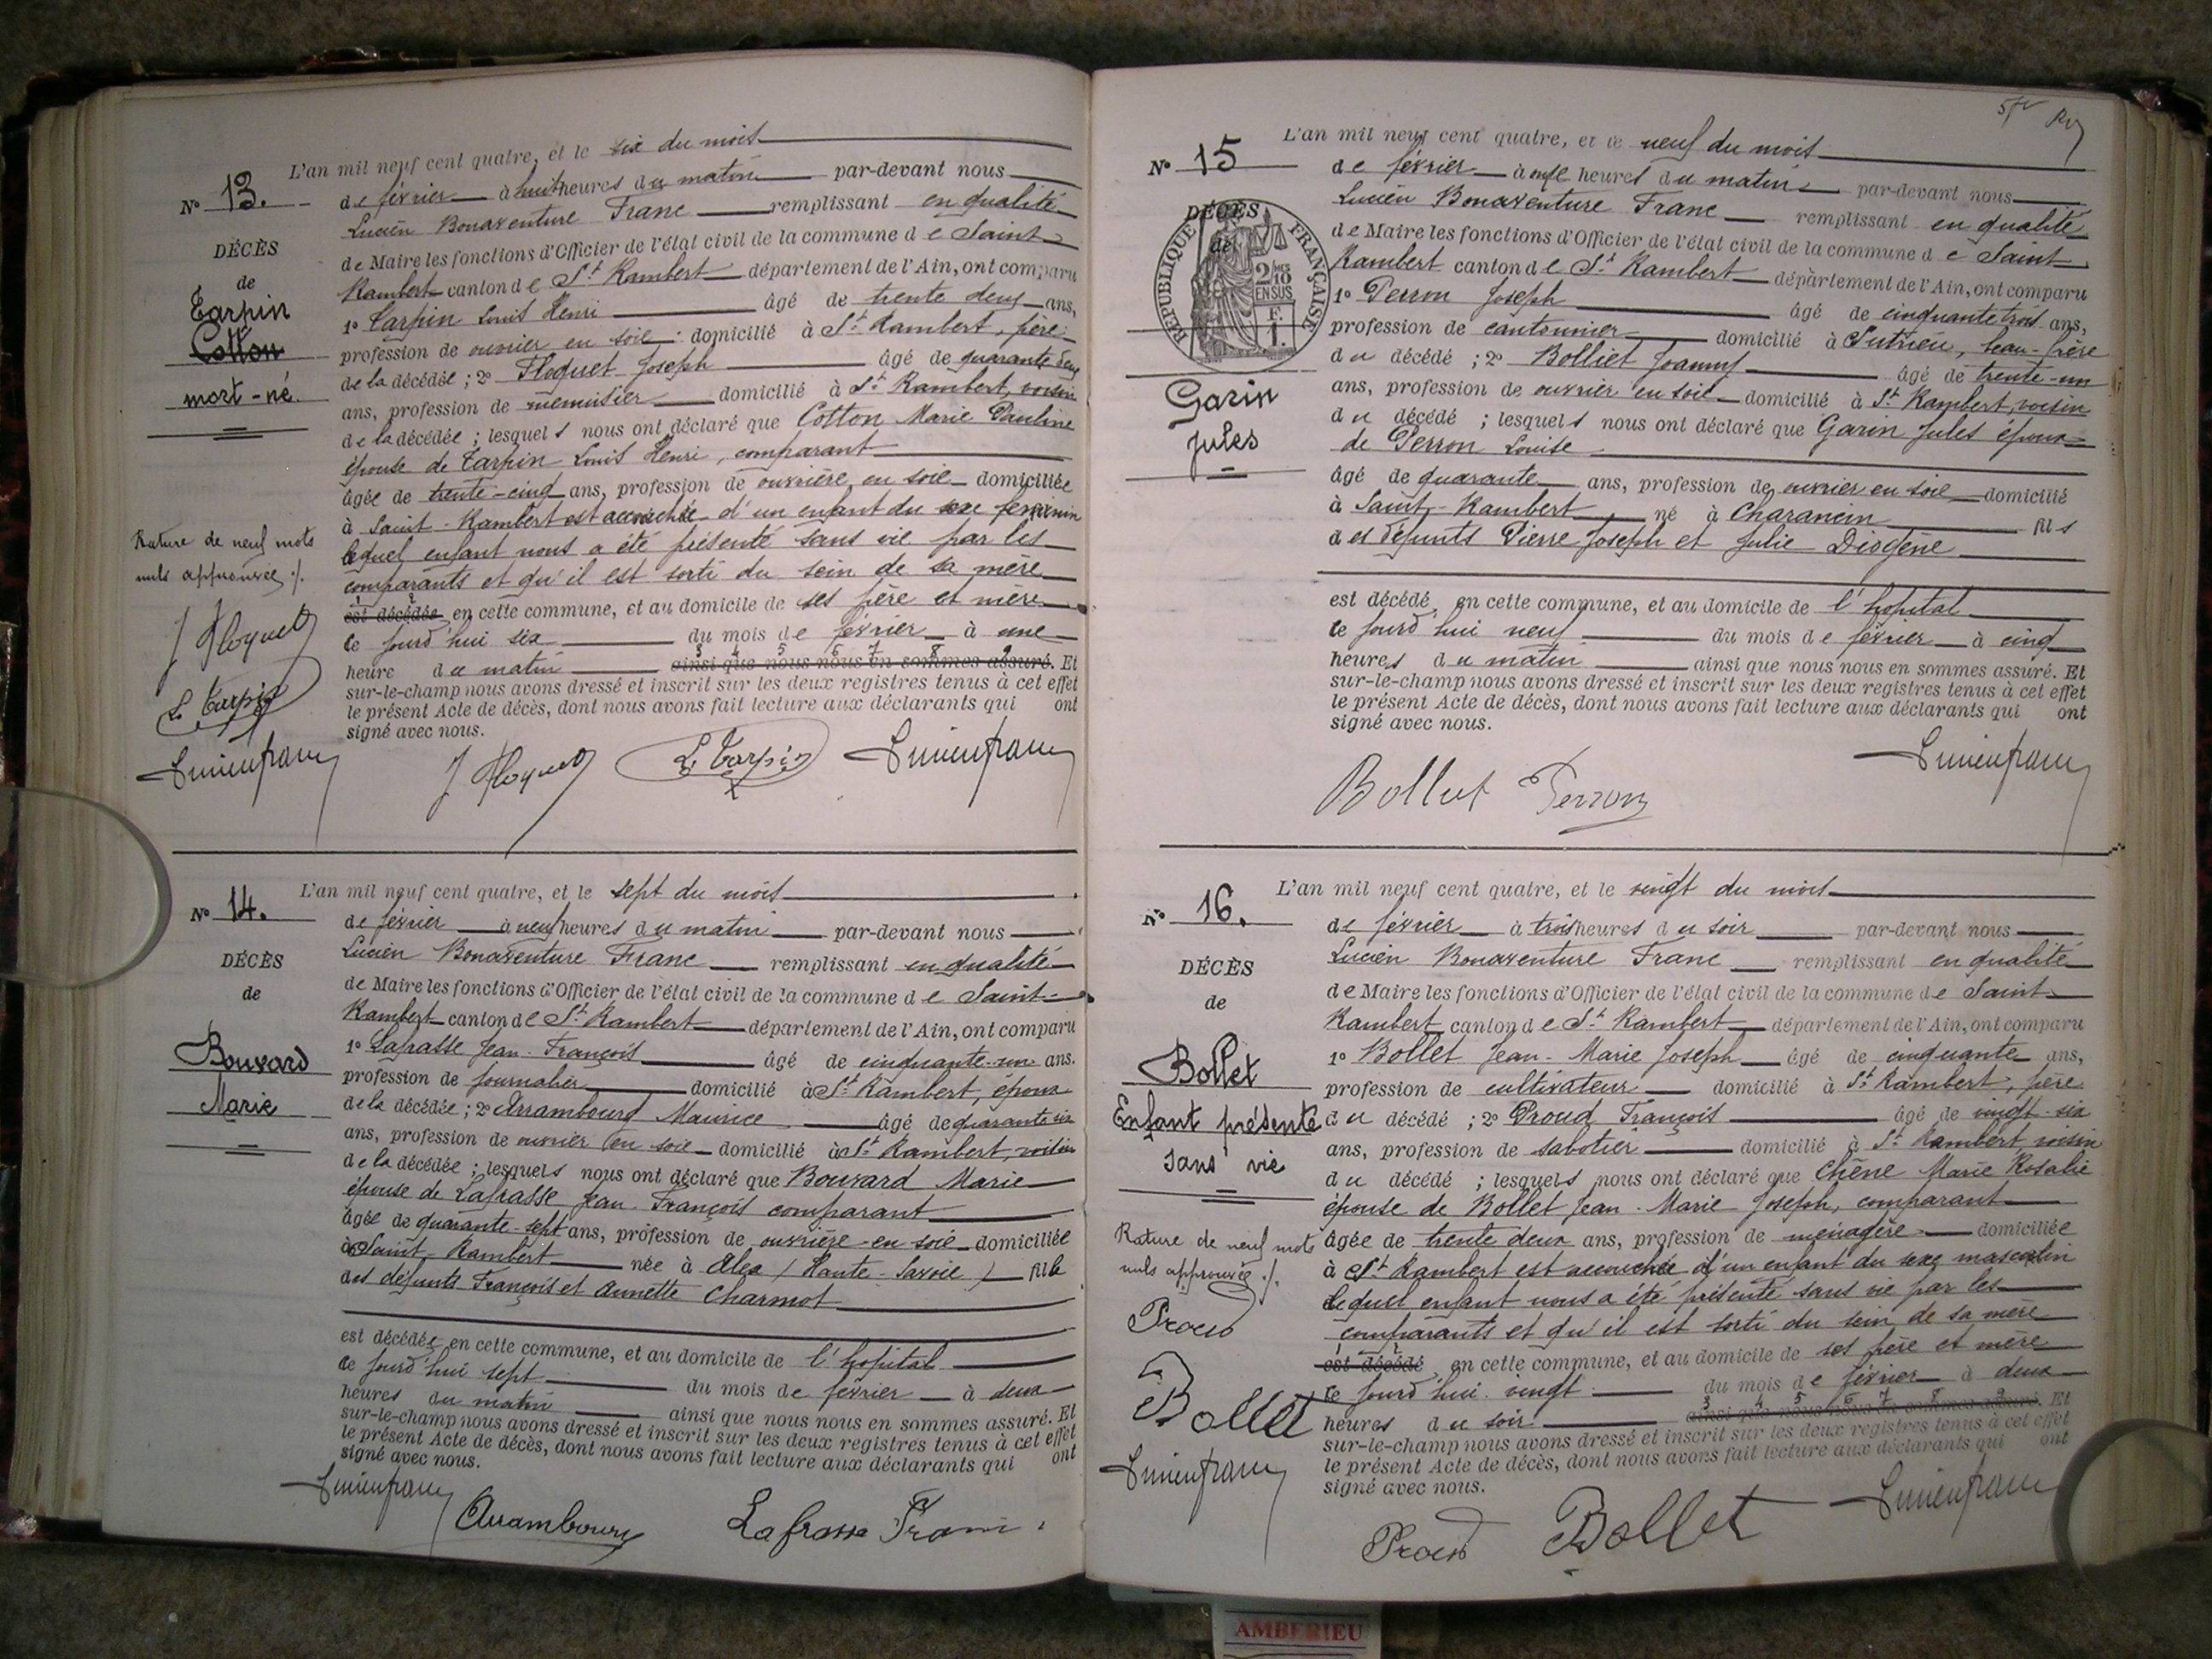 L'an mil neuf cent quatre, et le six du mois
N° 13.
de février à huit heures du matin par-devant nous
Lucien Bonaventure Franc remplissant en qualité
DÉCÈS
de Maire les fonctions d'Officier de l'état civil de la commune de Saint-
de
Rambert canton de St Rambert département de l'Ain, ont comparu
Tarpin
1° Tarpin Louis Henri âgé de trente deux ans,
Cotton
profession de ouvrier en soie domicilié à St Rambert, père
mort-né.
de la décédée ; 2° Floquet Joseph âgé de quarante deux
ans, profession de menuisier domicilié à St Rambert, voisin
de la décédée ; lesquels nous ont déclaré que Cotton Marie Pauline
épouse de Tarpin Louis Henri, comparant
âgée de trente-cinq ans, profession de ouvrière en soie domiciliée
à Saint-Rambert est accouchée d'un enfant du sexe féminin
Rature de neuf mots
lequel enfant nous a été présenté sans vie par les
nuls approuvée ./.
comparants et qu'il est sorti du sein de sa mère
est décédée en cette commune, et au domicile de ses père et mère
1 2
ce jourd'hui six du mois de février à une
3 4 5 6 7 8 9
heure du matin ainsi que nous nous en sommes assuré. Et
sur-le-champ nous avons dressé et inscrit sur les deux registres tenus à cet effet
le présent Acte de décès, dont nous avons fait lecture aux déclarants qui ont
signé avec nous.
J Floquet
L. Tarpin
Lucien franc
J Floquet L. Tarpin Lucien franc
L'an mil neuf cent quatre, et le sept du mois
N° 14.
de février à neuf heures du matin par-devant nous
Lucien Bonaventure Franc remplissant en qualité
DÉCÈS
de Maire les fonctions d'Officier de l'état civil de la commune de Saint-
de
Rambert canton de St Rambert département de l'Ain, ont comparu
Bouvard
1° Lafrasse Jean-François âgé de cinquante-un ans.
profession de journalier domicilié à St Rambert, époux
Marie
de la décédée ; 2° Arrambourg Maurice âgé de quarante six
ans, profession de ouvrier en soie domicilié à St Rambert, voisin
de la décédée ; lesquels nous ont déclaré que Bouvard Marie
épouse de Lafrasse Jean-François comparant
âgée de quarante-sept ans, profession de ouvrière-en-soie domiciliée
à Saint-Rambert née à Alex (Haute-Savoie) fille
des défunts François et Annette Charmot
est décédée en cette commune, et au domicile de l'hopital
ce jourd'hui sept du mois de février à deux
heures du matin ainsi que nous nous en sommes assuré. Et
sur-le-champ nous avons dressé et inscrit sur les deux registres tenus à cet effet
le présent Acte de décès, dont nous avons fait lecture aux déclarants qui ont
signé avec nous.
Lucien franc
Arrambourg Lafrasse Fran
L'an mil neuf cent quatre, et le neuf du mois
N° 15
de février à onze heures du matin par-devant nous
Lucien Bonaventure Franc remplissant en qualité
DÉCÈS
de
RÉPUBLIQUE FRANÇAISE
2/10 EN SUS
F. 1.
de Maire les fonctions d'Officier de l'état civil de la commune de Saint-
Rambert canton de St Rambert département de l'Ain, ont comparu
1° Perron Joseph âgé de cinquante trois ans,
profession de cantonnier domicilié à Jutrieu, beau-frère
du décédé ; 2° Bolliet Joanny âgé de trente-un
Garin
ans, profession de ouvrier en soie domicilié à St Rambert, voisin
Jules
du décédé ; lesquels nous ont déclaré que Garin Jules époux
de Perron Louise
âgé de quarante ans, profession de ouvrier en soie domicilié
à Saint-Rambert né à Charancin fils
des défunts Pierre Joseph et Julie Diogène
est décédé en cette commune, et au domicile de l'hopital
ce jourd'hui neuf du mois de février à cinq
heures du matin ainsi que nous nous en sommes assuré. Et
sur-le-champ nous avons dressé et inscrit sur les deux registres tenus à cet effet
le présent Acte de décès, dont nous avons fait lecture aux déclarants qui ont
signé avec nous.
Lucien franc
Bolliet Perron
L'an mil neuf cent quatre, et le vingt du mois
N° 16.
de février à trois heures du soir par-devant nous
Lucien Bonaventure Franc remplissant en qualité
DÉCÈS
de Maire les fonctions d'Officier de l'état civil de la commune de Saint-
de
Rambert canton de St Rambert département de l'Ain, ont comparu
Bollet
1° Bollet Jean-Marie Joseph âgé de cinquante ans,
profession de cultivateur domicilié à St Rambert, père
Enfant présenté
du décédé ; 2° Proud François âgé de vingt-six
sans vie
ans, profession de sabotier domicilié à St Rambert, voisin
du décédé ; lesquels nous ont déclaré que Chêne Marie Rosalie
épouse de Bollet Jean-Marie Joseph, comparant
Rature de neuf mots
âgée de trente deux ans, profession de ménagère domiciliée
nuls approuvée ./.
à St Rambert est accouchée d'un enfant du sexe masculin
lequel enfant nous a été présenté sans vie par les
Proud
comparants et qu'il est sorti du sein de sa mère
1 2
est décédé en cette commune, et au domicile de ses père et mère
Bollet
ce jourd'hui vingt du mois de février à deux
3 4 5 6 7 8 9
heures du soir ainsi que nous nous en sommes assuré. Et
sur-le-champ nous avons dressé et inscrit sur les deux registres tenus à cet effet
Lucien franc
le présent Acte de décès, dont nous avons fait lecture aux déclarants qui ont
signé avec nous.
Proud Bollet Lucien franc
AMBERIEU